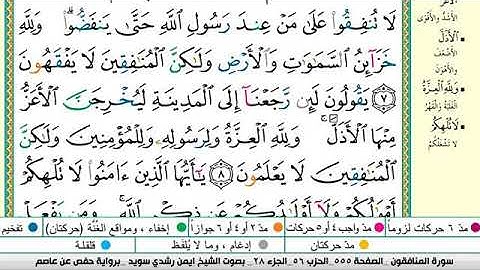 لَا تُنفِقُوا۟ عَلَىٰ مَنْ عِندَ رَسُولِ ٱللَّهِ حَتَّىٰ يَنفَضُّوا۟ ۗ وَلِلَّهِ
خَزَآئِنُ ٱلسَّمَٰوَٰتِ وَٱلْأَرْضِ وَلَٰكِنَّ ٱلْمُنَٰفِقِينَ لَا يَفْقَهُونَ
٧ يَقُولُونَ لَئِن رَّجَعْنَآ إِلَى ٱلْمَدِينَةِ لَيُخْرِجَنَّ ٱلْأَعَزُّ
مِنْهَا ٱلْأَذَلَّ ۚ وَلِلَّهِ ٱلْعِزَّةُ وَلِرَسُولِهِۦ وَلِلْمُؤْمِنِينَ وَلَٰكِنَّ
ٱلْمُنَٰفِقِينَ لَا يَعْلَمُونَ ٨ يَٰٓأَيُّهَا ٱلَّذِينَ ءَامَنُوا۟ لَا تُلْهِكُمْ
أَمْوَٰلُكُمْ وَلَآ أَوْلَٰدُكُمْ عَن ذِكْرِ ٱللَّهِ ۚ وَمَن يَفْعَلْ
الأَشَدُّ وَالأَقْوَى
الأَذَلَّ
الأَضْعَفَ
وَالأَهْوَنَ
وَلِلَّهِ الْعِزَّةُ
الغَلَبَةُ وَالْقَهْرُ
لَا تُلْهِكُمْ
لا تَشْغَلْكُمْ
مدّ ٦ حركات لزوماً
مدّ ٢ أو ٤ أو ٦ جوازاً
إخفاء، ومواقع الغُنّة (حركتان)
تفخيم
مدّ واجب ٤ أو ٥ حركات
مدّ حركتان
إدغام، وما لا يُلفَظ
قلقلة
سورة المنافقون - الصفحة ٥٥٥ - الحزب ٥٦ - الجزء ٢٨ - بصوت الشيخ ايمن رشدي سويد - برواية حفص عن عاصم